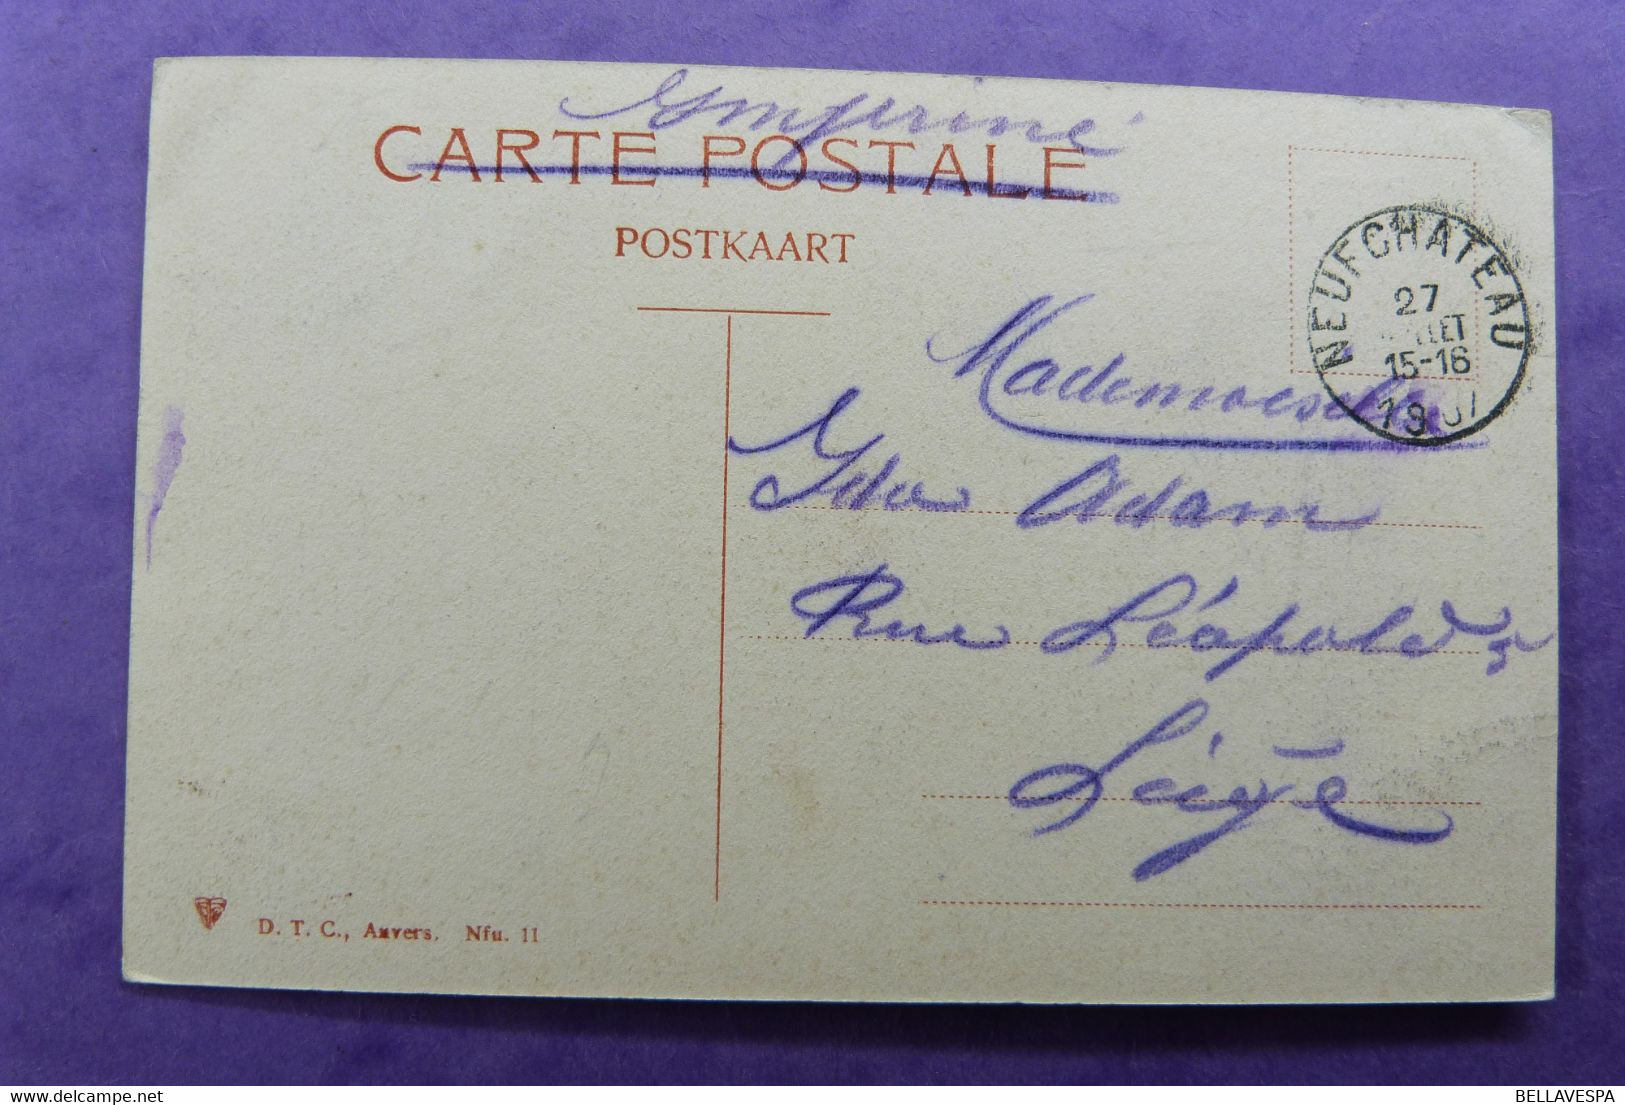 Imprimé
CARTE POSTALE
POSTKAART
NEUFCHATEAU
27
15-16
Mademoiselle
Ida Adam
Rue Léopold 5
Liége
D. T. C., Anvers. Nfu. 11
BELLAVESPA